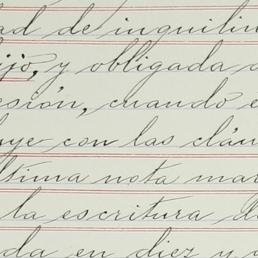 ad de inquilin
ijo, y obligada a
esión, cuando e
uye con las cláu
ltima nota mar
la escritura de
da en diez y